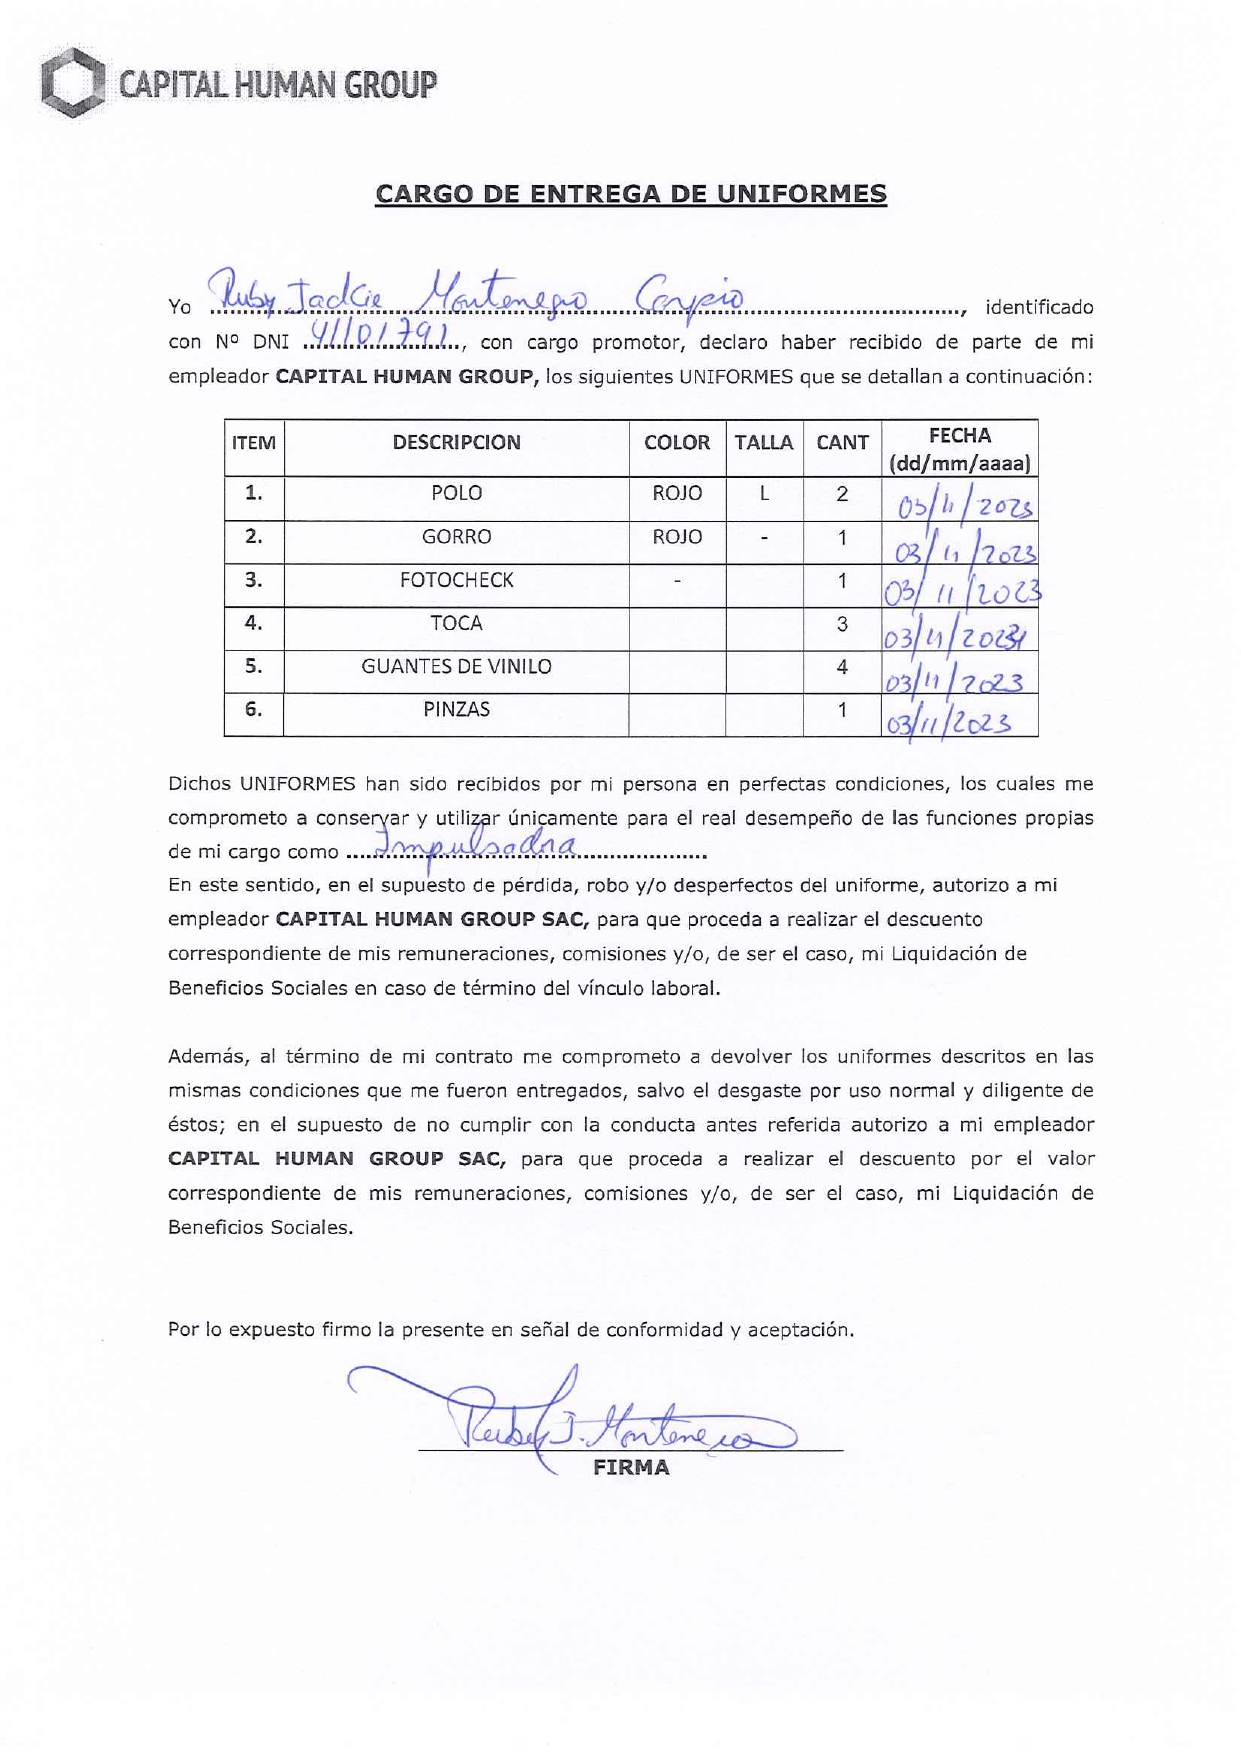 CAPITAL HUMAN GROUP
CARGO DE ENTREGA DE UNIFORMES
Yo Ruby Jackie Montenegro Carpio, identificado
con Nº DNI 41101791, con cargo promotor, declaro haber recibido de parte de mi
empleador CAPITAL HUMAN GROUP, los siguientes UNIFORMES que se detallan a continuación:
ITEM DESCRIPCION COLOR TALLA CANT FECHA (dd/mm/aaaa)
1. POLO ROJO L 2 03/11/2023
2. GORRO ROJO - 1 03/11/2023
3. FOTOCHECK - 1 03/11/2023
4. TOCA 3 03/11/2023
5. GUANTES DE VINILO 4 03/11/2023
6. PINZAS 1 03/11/2023
Dichos UNIFORMES han sido recibidos por mi persona en perfectas condiciones, los cuales me
comprometo a conservar y utilizar únicamente para el real desempeño de las funciones propias
de mi cargo como Impulsadra
En este sentido, en el supuesto de pérdida, robo y/o desperfectos del uniforme, autorizo a mi
empleador CAPITAL HUMAN GROUP SAC, para que proceda a realizar el descuento
correspondiente de mis remuneraciones, comisiones y/o, de ser el caso, mi Liquidación de
Beneficios Sociales en caso de término del vínculo laboral.
Además, al término de mi contrato me comprometo a devolver los uniformes descritos en las
mismas condiciones que me fueron entregados, salvo el desgaste por uso normal y diligente de
éstos; en el supuesto de no cumplir con la conducta antes referida autorizo a mi empleador
CAPITAL HUMAN GROUP SAC, para que proceda a realizar el descuento por el valor
correspondiente de mis remuneraciones, comisiones y/o, de ser el caso, mi Liquidación de
Beneficios Sociales.
Por lo expuesto firmo la presente en señal de conformidad y aceptación.
Ruby J. Montenegro
FIRMA